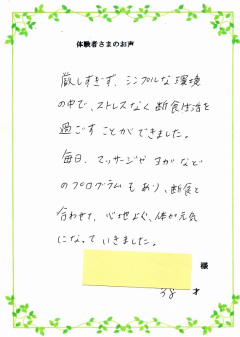 体験者さまのお声
厳しすぎず、シンプルな環境
の中で、ストレスなく断食生活を
過ごすことができました。
毎日、マッサージやヨガなど
のプログラムもあり、断食と
合わせて、心地よく、体が元気
になっていきました。
様
38 才